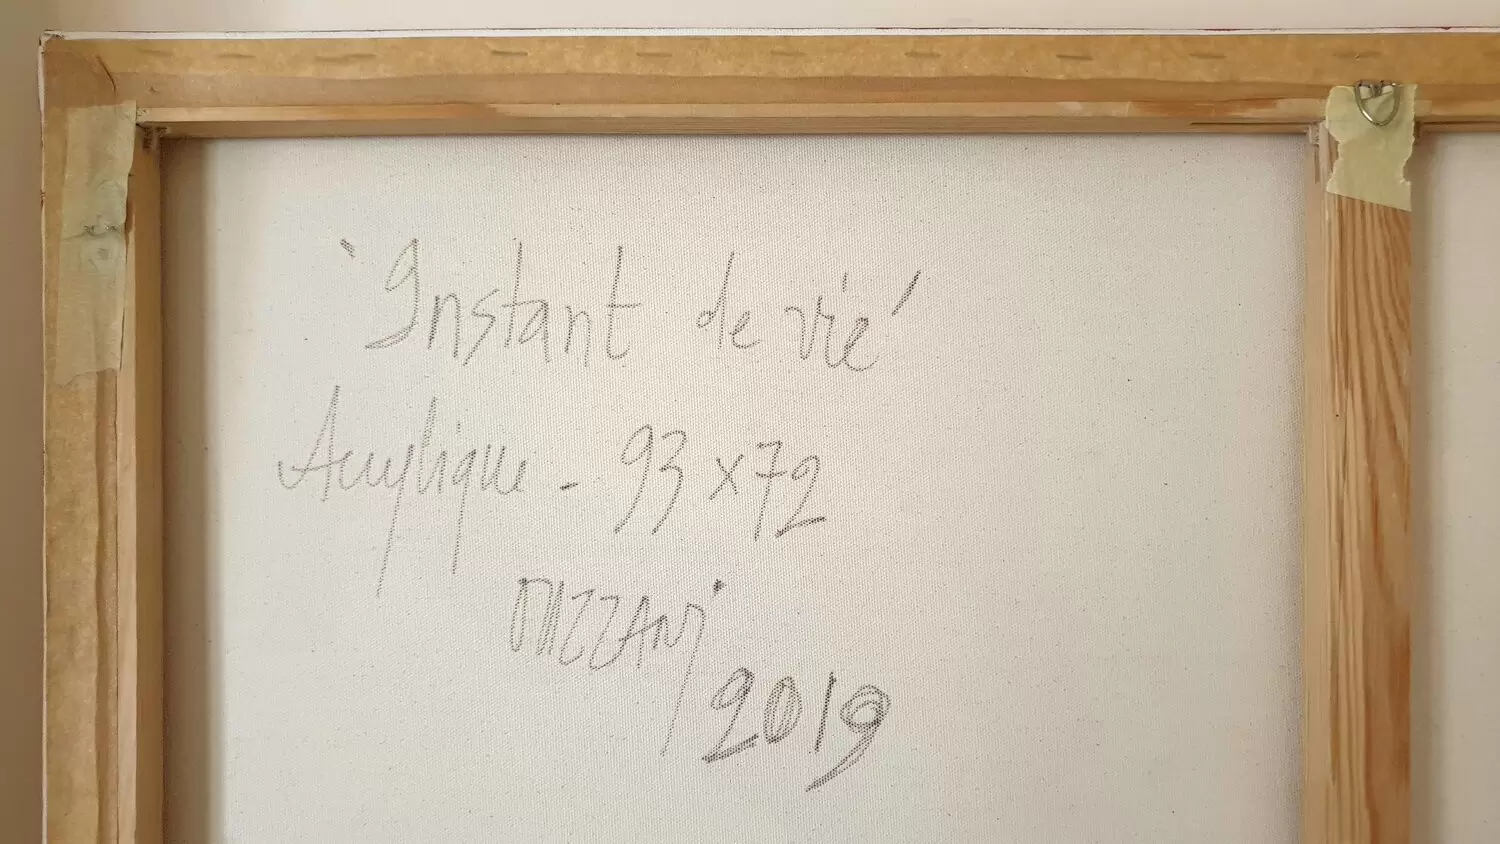 'Instant de vie'
Acrylique - 93 x 72
MAZZANI
2019